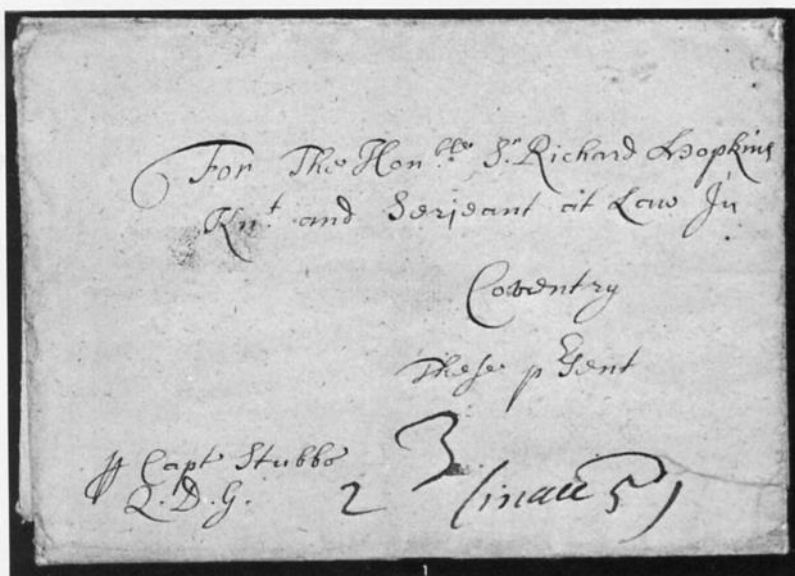 For The Hon.ble Sr. Richard Hopkins
Kn.t and Serjeant at Law In
Coventry
These p Sent
Capt Stubbs
Q.D.G. 2 3 (in all 5)
1